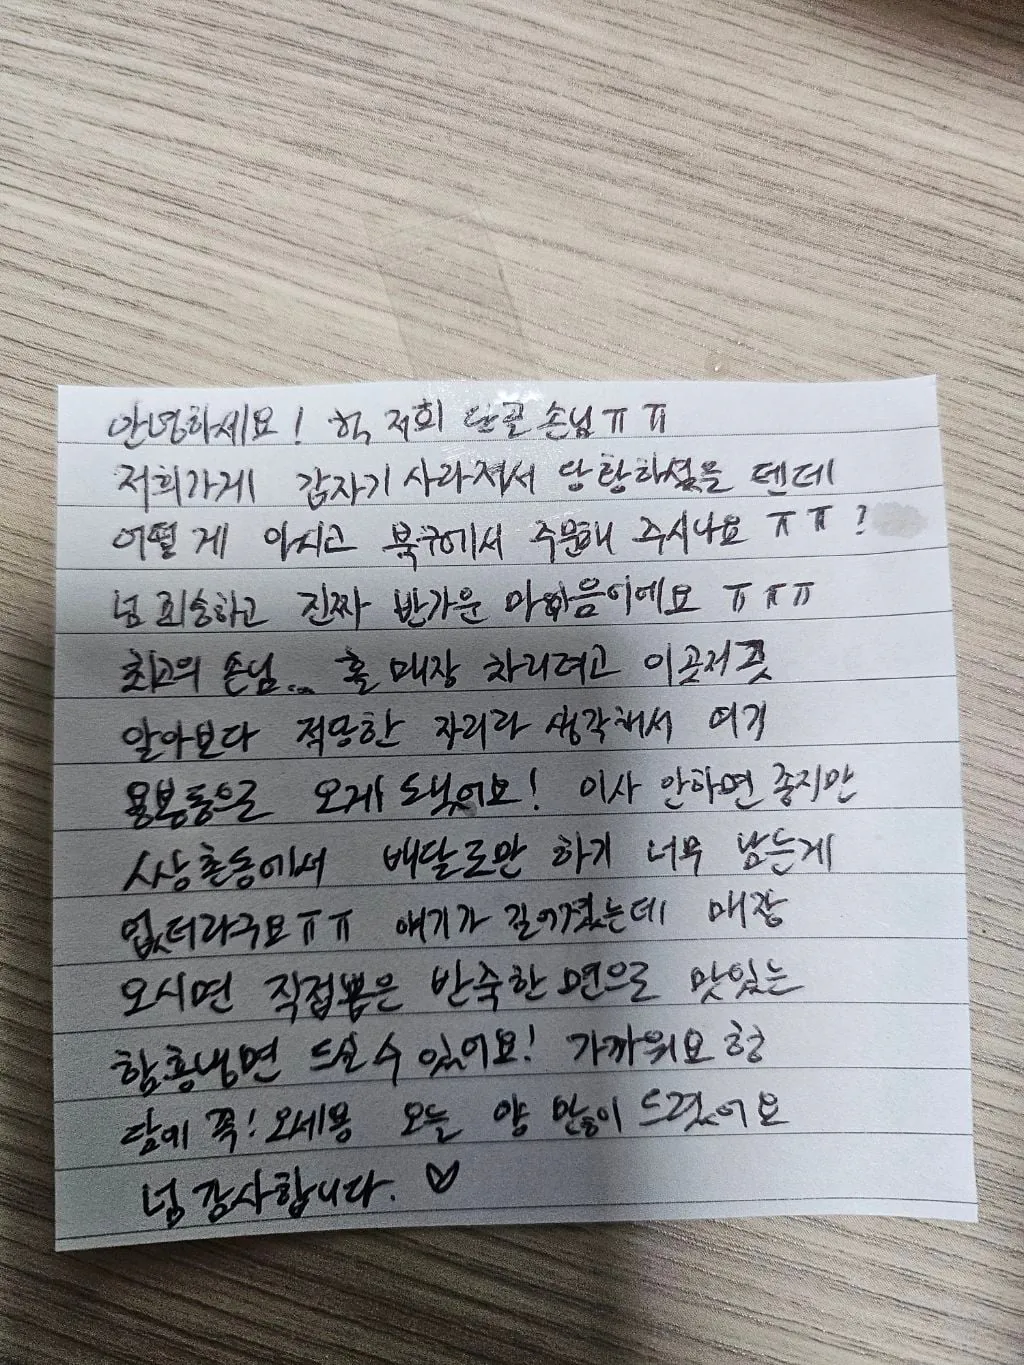 안녕하세요! 헉 저희 단골 손님ㅠㅠ
저희가게 갑자기 사라져서 당황하셨을 텐데
어떻게 아시고 북구에서 주문해 주시나요 ㅠㅠ?
넘 죄송하고 진짜 반가운 마음이에요 ㅠㅠㅠ
최고의 손님... 홀 매장 차리려고 이곳저곳
알아보다 적당한 자리라 생각해서 여기
용봉동으로 오게 됬어요! 이사 안하면 좋지만
상촌동에서 배달로만 하기 너무 남는게
없더라구요ㅠㅠ 얘기가 길어졌는데 매장
오시면 직접뽑은 반죽한 면으로 맛있는
함흥냉면 드실 수 있어요! 가까워요 헝
담에 꼭! 오세용 오늘 양 많이 드렸어요
넘 감사합니다. ♡